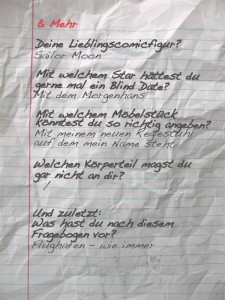 & Mehr
Deine Lieblingscomicfigur?
Sailor Moon
Mit welchem Star hättest du
gerne mal ein Blind Date?
Mit dem Morgenhans
Mit welchem Möbelstück
könntest du so richtig angeben?
Mit meinem neuen Regiestuhl
auf dem mein Name steht
Welchen Körperteil magst du
gar nicht an dir?
/
Und zuletzt:
Was hast du nach diesem
Fragebogen vor?
Flughafen - wie immer